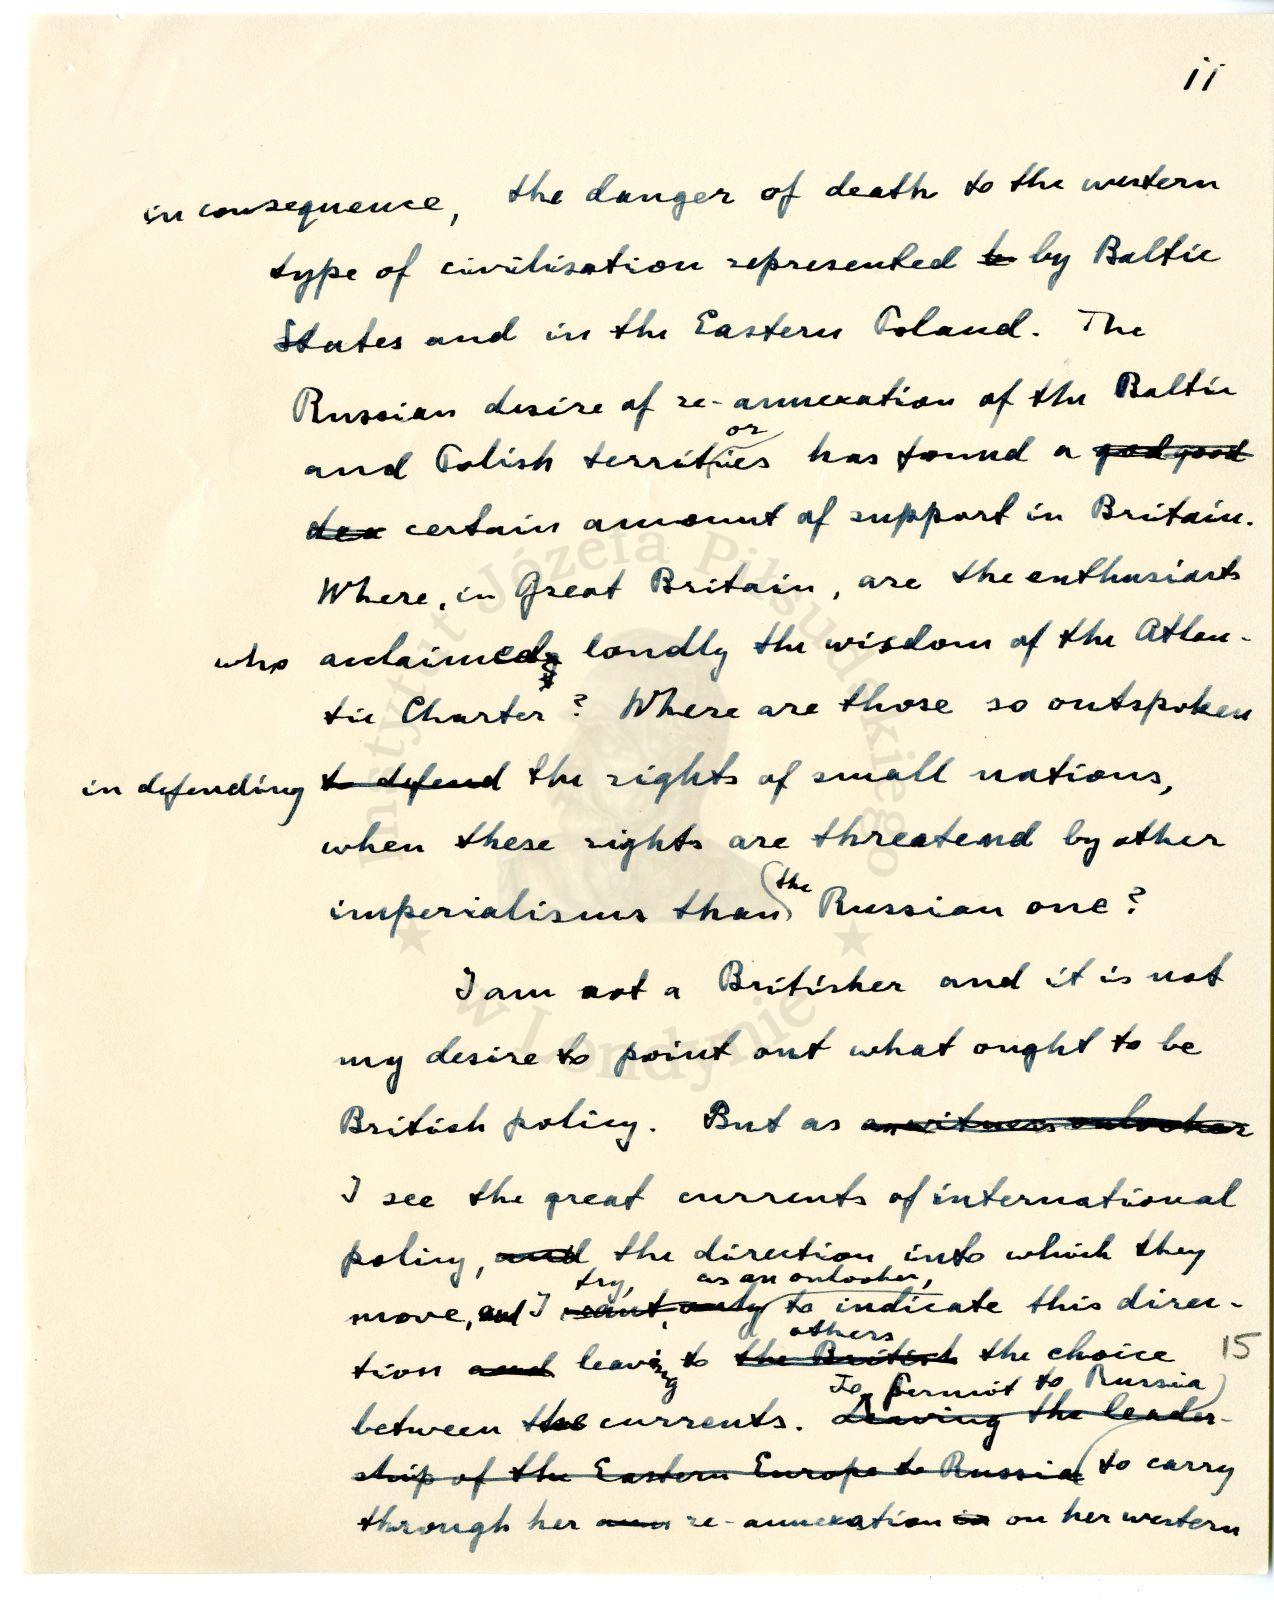 11
in consequence, the danger of death to the western
type of civilisation represented ~~to~~ by Baltic
States and in the Eastern Poland. The
Russian desire of re-annexation of the Baltic
and Polish territories has found a ~~god good~~
certain amount of support in Britain.
Where, in Great Britain, are the enthusiasts
who acclaimed loudly the wisdom of the Atlan-
tic Charter? Where are those so outspoken
in defending ~~to defend~~ the rights of small nations,
when these rights are threatend by other
imperialisms than the Russian one?
I am not a Britisher and it is not
my desire to point out what ought to be
British policy. But as ~~an witness onlooker~~
I see the great currents of international
policy, ~~and~~ the direction into which they
try, as an onlooker,
move, and I ~~want, only~~ to indicate this direc-
others
tion ~~and~~ leaving to ~~the British~~ the choice
15
To permit to Russia
between the currents. ~~Leaving the leader-~~
~~ship of the Eastern Europe to Russia~~ to carry
through her ~~ann~~ re-annexation ~~in~~ on her western
Instytut Józefa Piłsudskiego
w Londynie